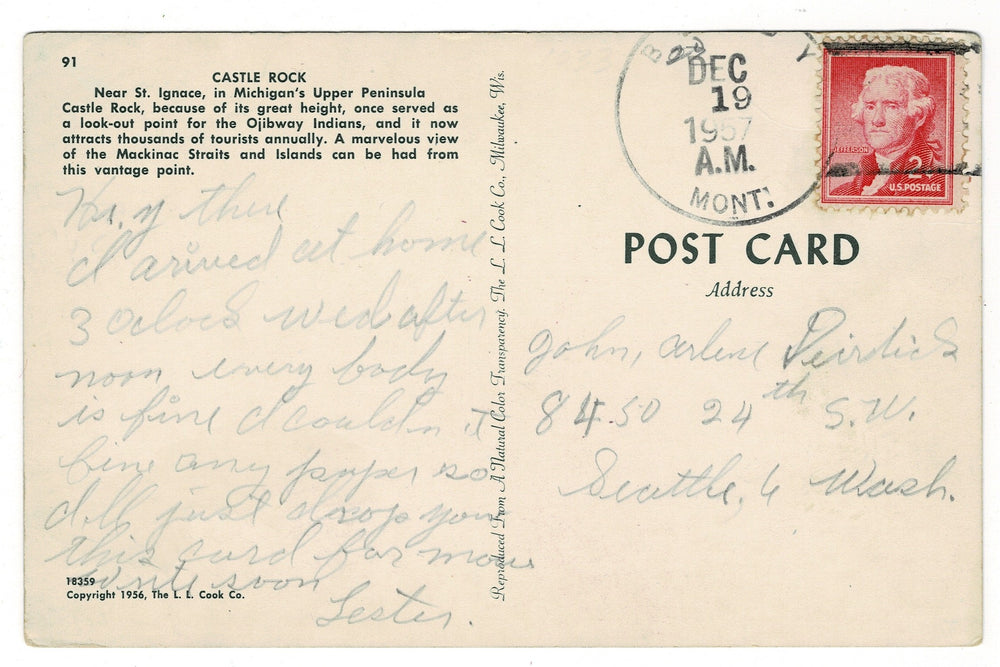 91
CASTLE ROCK
Near St. Ignace, in Michigan's Upper Peninsula
Castle Rock, because of its great height, once served as
a look-out point for the Ojibway Indians, and it now
attracts thousands of tourists annually. A marvelous view
of the Mackinac Straits and Islands can be had from
this vantage point.
Hi, y there
I arived at home
3 oclock wed after
noon every body
is fine I couldn't
fine any paper so
I'll just drop you
this card for now
write soon
Lester.
18359
Copyright 1956, The L. L. Cook Co.
Reproduced From A Natural Color Transparency. The L. L. Cook Co., Milwaukee, Wis.
DEC
19
1957
A.M.
MONT.
JEFFERSON
2¢
U.S. POSTAGE
POST CARD
Address
John, Arlene
8450 24th S.W.
Seattle, 6 Wash.